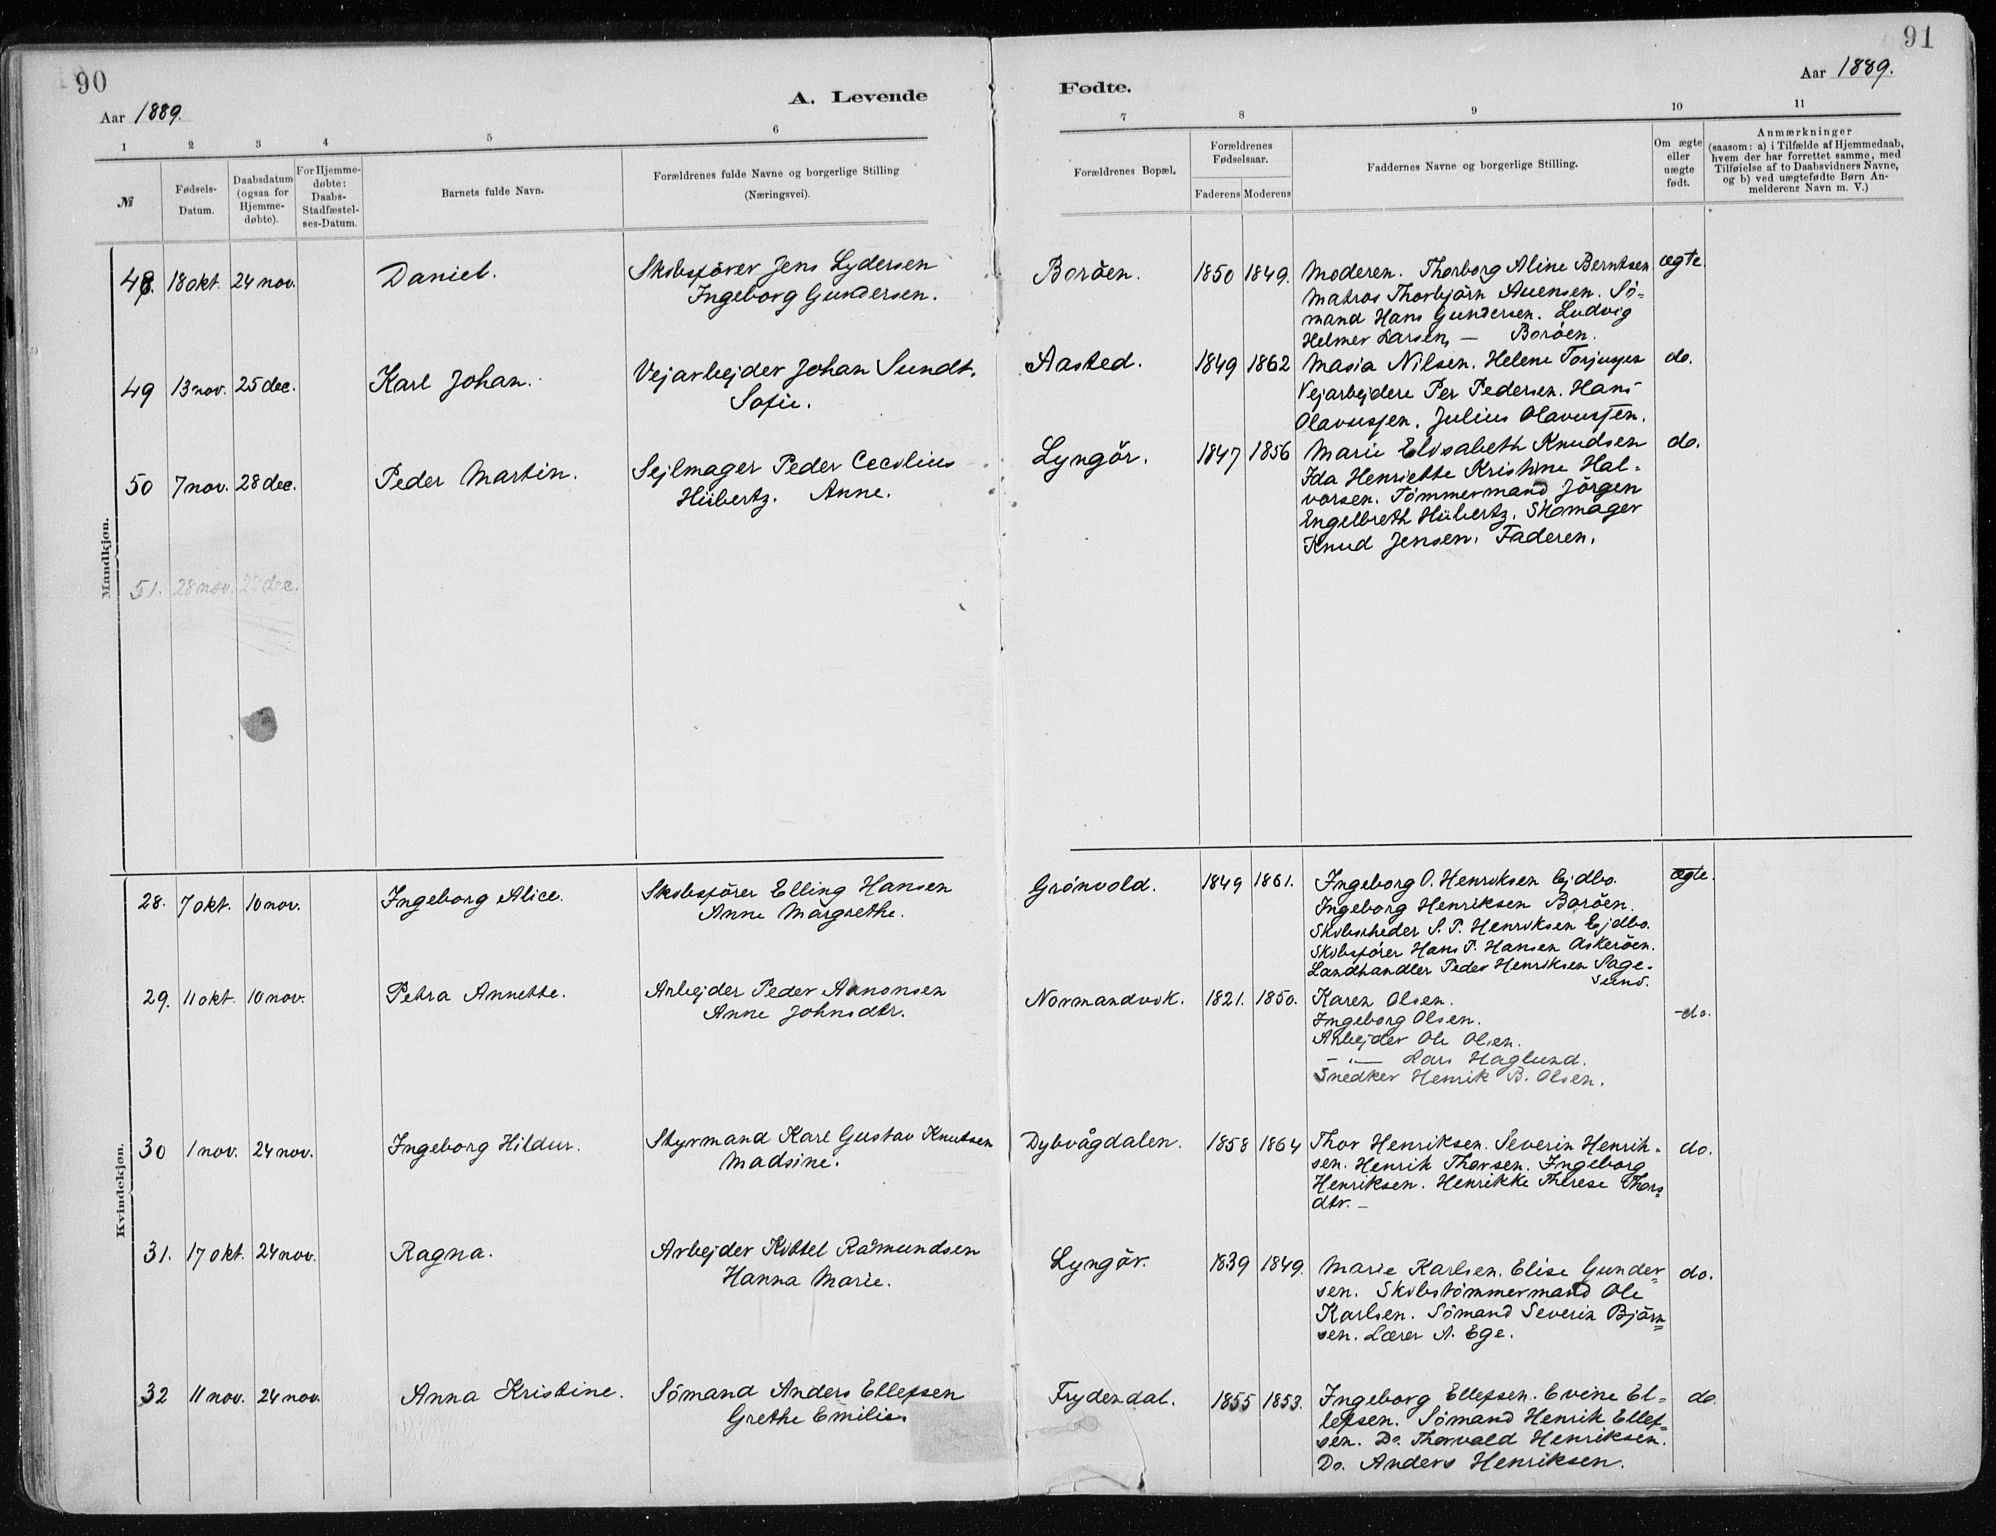 90
Aar 1889.
A. Levende
1 2 3 4 5 6
№
Fødsels-
Datum.
Daabsdatum
(ogsaa for
Hjemme-
døbte).
For Hjemme-
døbte:
Daabs-
Stadfæstel-
ses-Datum.
Barnets fulde Navn.
Forældrenes fulde Navne og borgerlige Stilling
(Næringsvei).
Mandkjøn.
48. 18 okt. 24 nov. Daniel. Skibsfører Jens Lydersen
Ingeborg Gundersen.
49 13 nov. 25 dec. Karl Johan. Vejarbejder Johan Sundt.
Sofie.
50 7 nov. 28 dec. Peder Martin. Sejlmager Peder Cecilius
Hübertz. Anne.
51. 28 nov. dec.
Kvindekjøn.
28. 7 okt. 10 nov. Ingeborg Alice. Skibsfører Elling Hansen
Anne Margrethe.
29. 11 okt. 10 nov. Petra Annette. Arbejder Peder Aanonsen
Anne Johnsdtr.
30 1 nov. 24 nov. Ingeborg Hildur. Styrmand Karl Gustav Knutsen
Madsine.
31. 17 okt. 24 nov. Ragna. Arbejder Kittel Rasmundsen
Hanna Marie.
32 11 nov. 24 nov. Anna Kristine. Sømand Anders Ellefsen
Grethe Emilie.
91
Aar 1889.
Fødte.
7 8 9 10 11
Forældrenes Bopæl.
Forældrenes
Fødselsaar.
Faderens Moderens
Faddernes Navne og borgerlige Stilling.
Om ægte
eller
uægte
født.
Anmærkninger
(saasom: a) i Tilfælde af Hjemmedaab,
hvem der har forrettet samme, med
Tilføielse af to Daabsvidners Navne,
og b) ved uægtefødte Børn An-
melderens Navn m. V.)
Borøen. 1850 1849. Moderen. Thorborg Aline Berntsen ægte.
Matros Thorbjørn Auensen. Sø-
mand Hans Gundersen. Ludvig
Helmer Larsen, — Borøen.
Aasted. 1849 1862 Masia Nilsen. Helene Torjusen do.
Vejarbejdere Per Pedersen. Hans
Olavussen. Julius Olavussen.
Lyngør. 1847 1856 Marie Elisabeth Knudsen do.
Ida Henriette Kristine Hal-
vorsen. Tømmermand Jørgen
Engelbreth Hübertz. Skomager
Knud Jensen. Faderen.
Grønvold. 1849 1861. Ingeborg O. Henriksen Ejdbo. ægte.
Ingeborg Henriksen Borøen.
Skibsrheder S. P. Henriksen Ejdbo.
Skibsfører Hans P. Hansen Askerøen.
Landhandler Peder Henriksen Sage-
sund.
Normandvik. 1821. 1850. Karen Olsen. -do.
Ingeborg Olsen.
Arbejder Ole Olsen.
— " — Lars Haglund.
Snedker Henrik B. Olsen.
Dybvågdalen. 1858 1864 Thor Henriksen. Severin Henrik- do.
sen. Henrik Thorsen. Ingeborg
Henriksen. Henrikke Therese Thors-
dtr. –
Lyngør. 1839 1849. Marie Karlsen. Elise Gunder- do.
sen. Skibstømmermand Ole
Karlsen. Sømand Severin Bjørn-
sen. Lærer A. Ege.
Frydendal. 1855 1853. Ingeborg Ellefsen. Evine El- do.
lefsen. Sømand Henrik Ellef-
sen. Do. Thorvald Henriksen.
Do. Anders Henriksen.